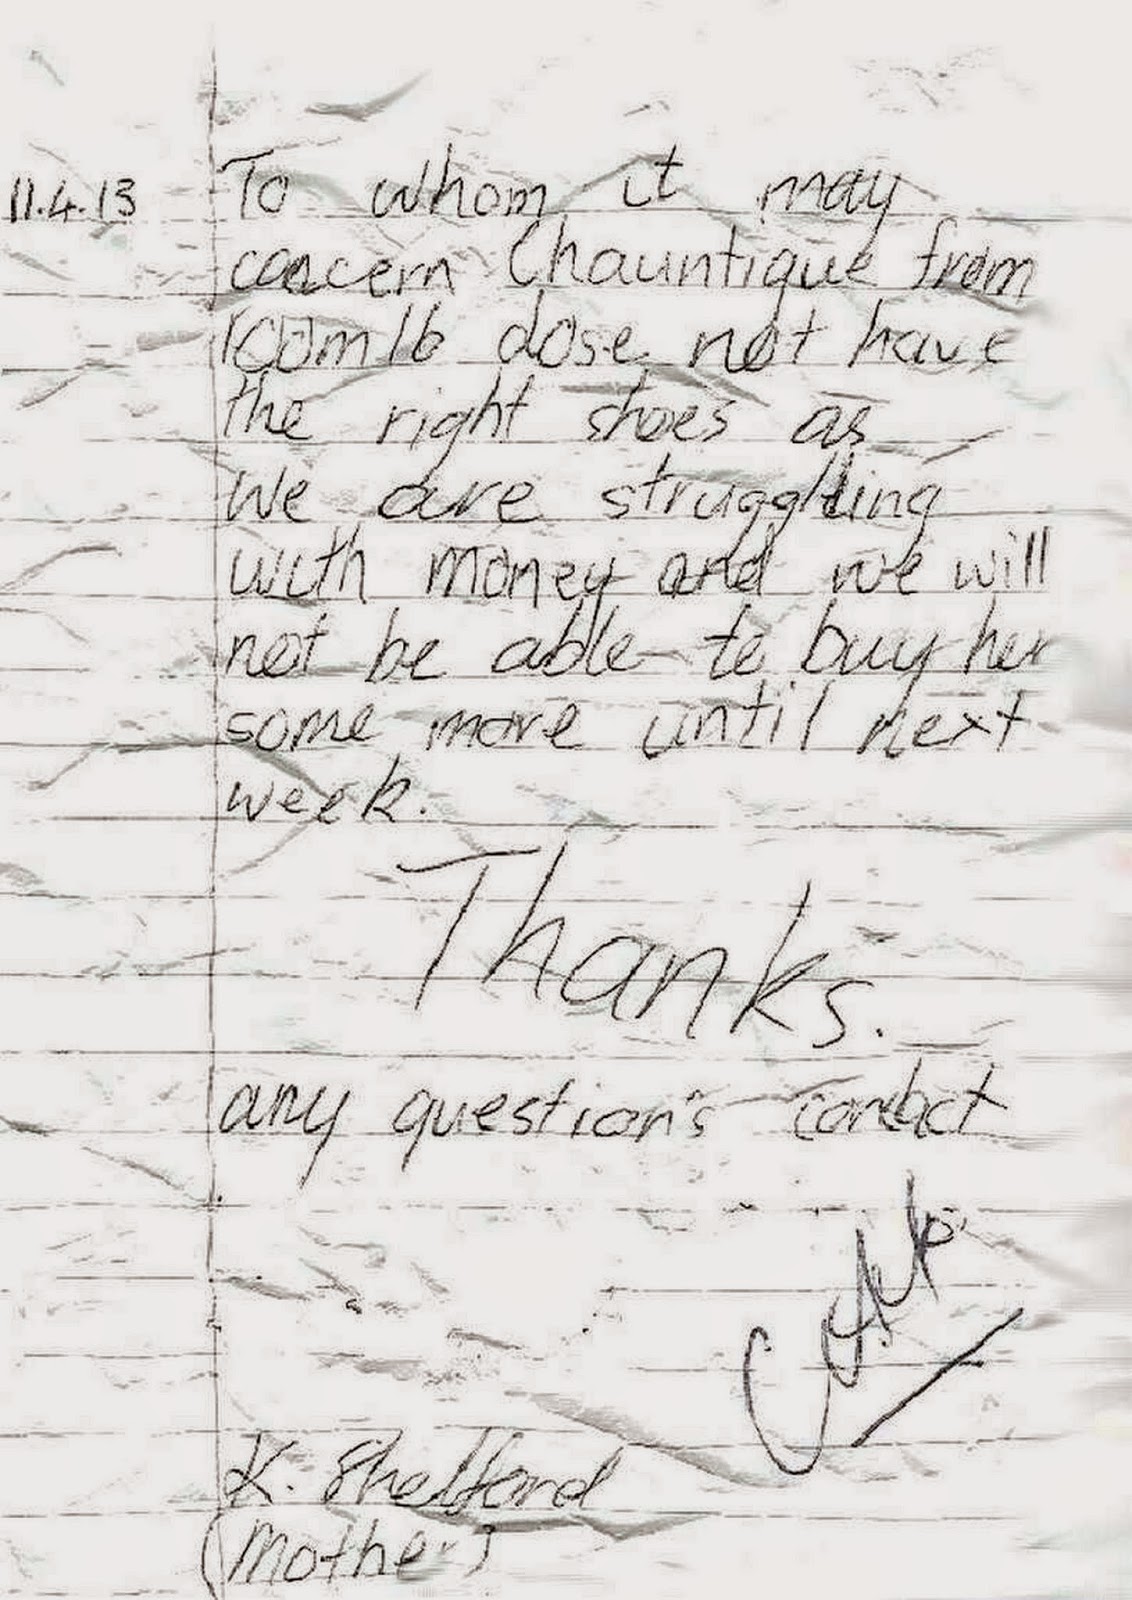 11.4.13 To whom it may
concern Chauntique from
room16 dose not have
the right shoes as
we are struggling
with money and we will
not be able to buy her
some more until next
week.
Thanks.
any question's contact
K. Shelford
(Mother)